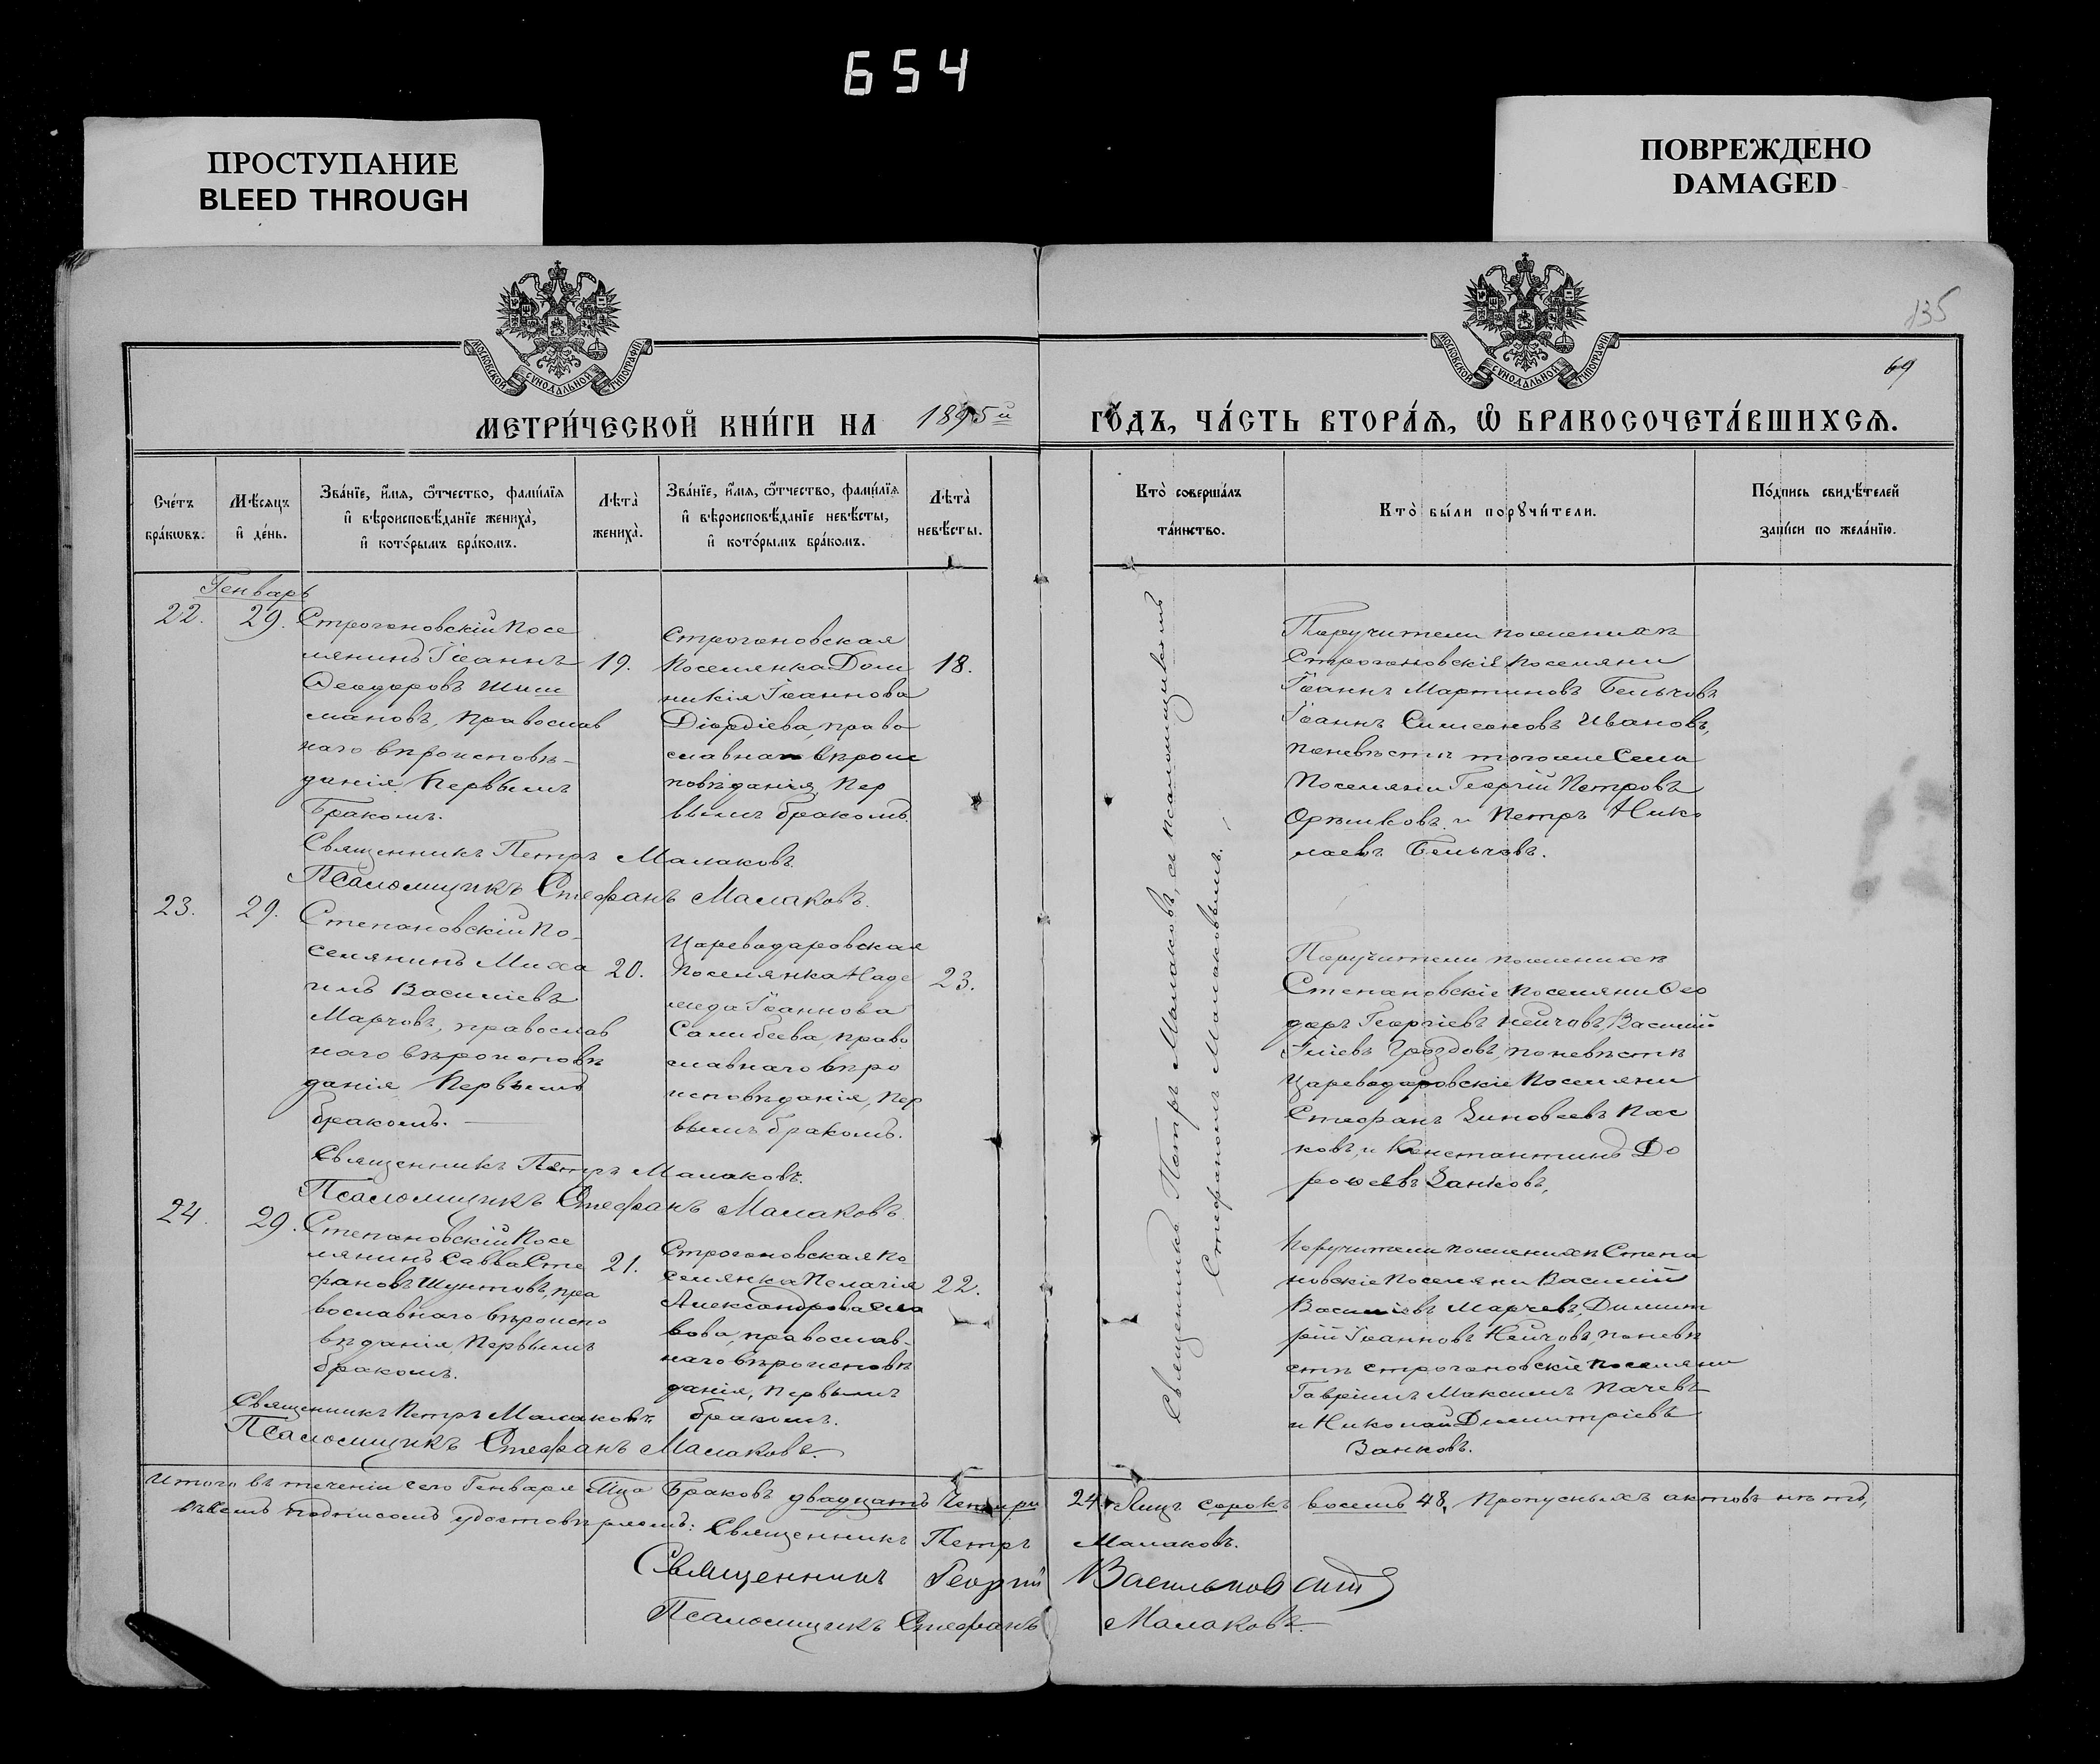 654
ПРОСТУПАНИЕ
BLEED THROUGH
ПОВРЕЖДЕНО
DAMAGED
135
69
МОСКОВСКОЙ СѴНОДАЛЬНОЙ ТИПОГРАФІИ
МОСКОВСКОЙ СѴНОДАЛЬНОЙ ТИПОГРАФІИ
МЕТРИ́ЧЕСКОЙ КНИ́ГИ НА 1895й ГО́ДЪ, ЧА́СТЬ ВТОРА́Ѧ, Ѽ БРАКОСОЧЕТА́ВШИХСѦ.
Сче́тъ
бра́кѡвъ.
Мѣ́сяцъ
и҆ де́нь.
Зва́нїе, и҆́мѧ, ѻ҆́тчество, фами́лїѧ
и҆ вѣроисповѣ́данїе жениха̀,
и҆ кото́рымъ бра́комъ.
Лѣта̀
жениха̀.
Зва́нїе, и҆́мѧ, ѻ҆́тчество, фами́лїѧ
и҆ вѣроисповѣ́данїе невѣ́сты,
и҆ кото́рымъ бра́комъ.
Лѣта̀
невѣ́сты.
Кто̀ соверша́лъ
та́инство.
Кто̀ бы́ли порꙋчи́тели.
По́дпись свидѣ́телей
за́писи по жела́нїю.
Генварь
22.
29.
Строгановскій посе
лянинъ Іоаннъ
Ѳеодоровъ Шиш
мановъ, православ
наго вѣроисповѣ-
данія Первымъ
Бракомъ.
19.
Строгановская
Поселянка Доми
никія Іоаннова
Діордіева, право
славнаго вѣроис
повѣданія, Пер
вымъ бракомъ.
18.
Священникъ Петръ Малаковъ.
Псаломщикъ Стефанъ Малаковъ.
Поручители поженихѣ
Строгановскіе поселяни
Іоаннъ Мартиновъ Бельчовъ
Іоаннъ Симеоновъ Ивановъ,
поневѣстѣ тогоже Села
Поселяни Георгій Петровъ
Орѣшковъ и Петръ Нико
лаевъ Бельчовъ.
23.
29.
Степановскій По-
селянинъ Миха
илъ Василіевъ
Марчовъ, православ
наго вѣроисповѣ
данія, Первымъ
бракомъ.
20.
Цареводаровская
Поселянка Наде
жда Іоаннова
Салибеева, право
славнаго вѣро
исповѣданія, Пер
вымъ бракомъ.
23.
Священникъ Петръ Малаковъ.
Псаломщикъ Стефанъ Малаковъ.
Поручители поженихѣ
Степановскіе поселяни Ѳео
доръ Георгіевъ Нейчовъ, Василій
Иліевъ Гроздовъ, поневѣстѣ
Цареводаровскіе Поселяни
Стефанъ Зиновеевъ Пас
ковъ и Константинъ До
рофеевъ Занковъ,
24.
29.
Степановскій Посе
лянинъ Савва Сте
фановъ Шунтовъ, пра
вославнаго вѣроиспо
вѣданія, Первымъ
бракомъ.
21.
Строгановская По
селянка Пелагія
Александрова Сла
вова, православ-
наго вѣроисповѣ
данія, первымъ
бракомъ.
22.
Священникъ Петръ Малаковъ.
Псаломщикъ Стефанъ Малаковъ.
Поручители поженихѣ Степа
новскіе Поселяни Василій
Василіевъ Марчевъ, Димит
рій Іоанновъ Нейчовъ, поневѣ
стѣ строгановскіе поселяни
Гавріилъ Максимъ Пачевъ
и Николай Димитріевъ
Занковъ.
Священникъ Петръ Малаковъ, съ псаломщикомъ
Стефаномъ Малаковымъ.
Итого въ теченіи сего Генваря М-ца Браковъ двадцать Четыри 24. Лицъ сорокъ восемь 48, Пропускныхъ актовъ нѣтъ,
въ семъ подписомъ удостовѣряемъ: Священникъ Петръ Малаковъ.
Священникъ Георгій Васильковскій
Псаломщикъ Стефанъ Малаковъ.